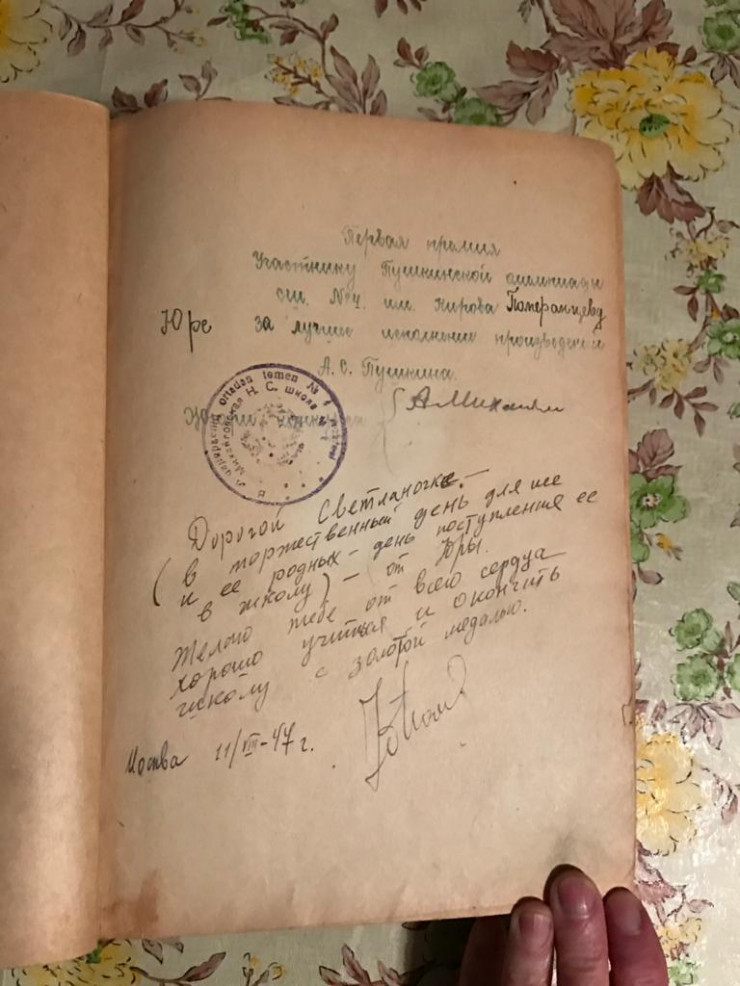 Первая премия
Участнику Пушкинской олимпиады
сш. №4. им. Кирова Померанцеву
Юре за лучшее исполнение произведений
А. С. Пушкина.
ortadan tomen №
Н. С. школа
Дорогой Светланочке –
(в торжественный день для нее
и ее родных – день поступления ее
в школу) – от Юры.
Желаю тебе от всего сердца
хорошо учиться и окончить
школу с золотой медалью.
Москва 11/VIII-47 г.